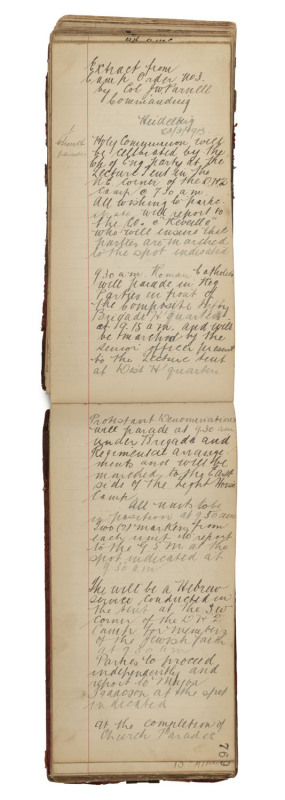 Extract from
Camp Order No 3.
by Col JW Parnell
Commanding
Heidelberg
Church
parades
Holy Communion will
be celebrated by the
of Eng party at the
Lecture Tent in the
NE corner of the
Camp @ 7.30 am
All wishing to
will report to
the Co. @ Reveille
who will insure that
parties are marched
to the spot indicated
9.30 am. Roman Catholics
will parade in Reg
Parties in front of
the Composite
Brigade H quarters
at 9.15 am. and will
be marched by the
senior officer present
to the Lecture tent
at Dist H quarters
Protestant Denominations
will parade at 9.30 am
under Brigade and
Regimental arrange
ments and will be
marched to the East
side of the Light Horse
Camp
All units to be
in position at 9.50 am
Two (2) markers from
each unit to report
to the G S M at the
spot indicated at
9.30 am
The will be a Hebrew
service, conducted in
the tent at the SW
corner of the
Camp for members
of the Jewish faith
at 9.30 am
Parties to proceed
independently and
report to Major
Isaacson at the spot
indicated
at the completion of
Church Parades
769